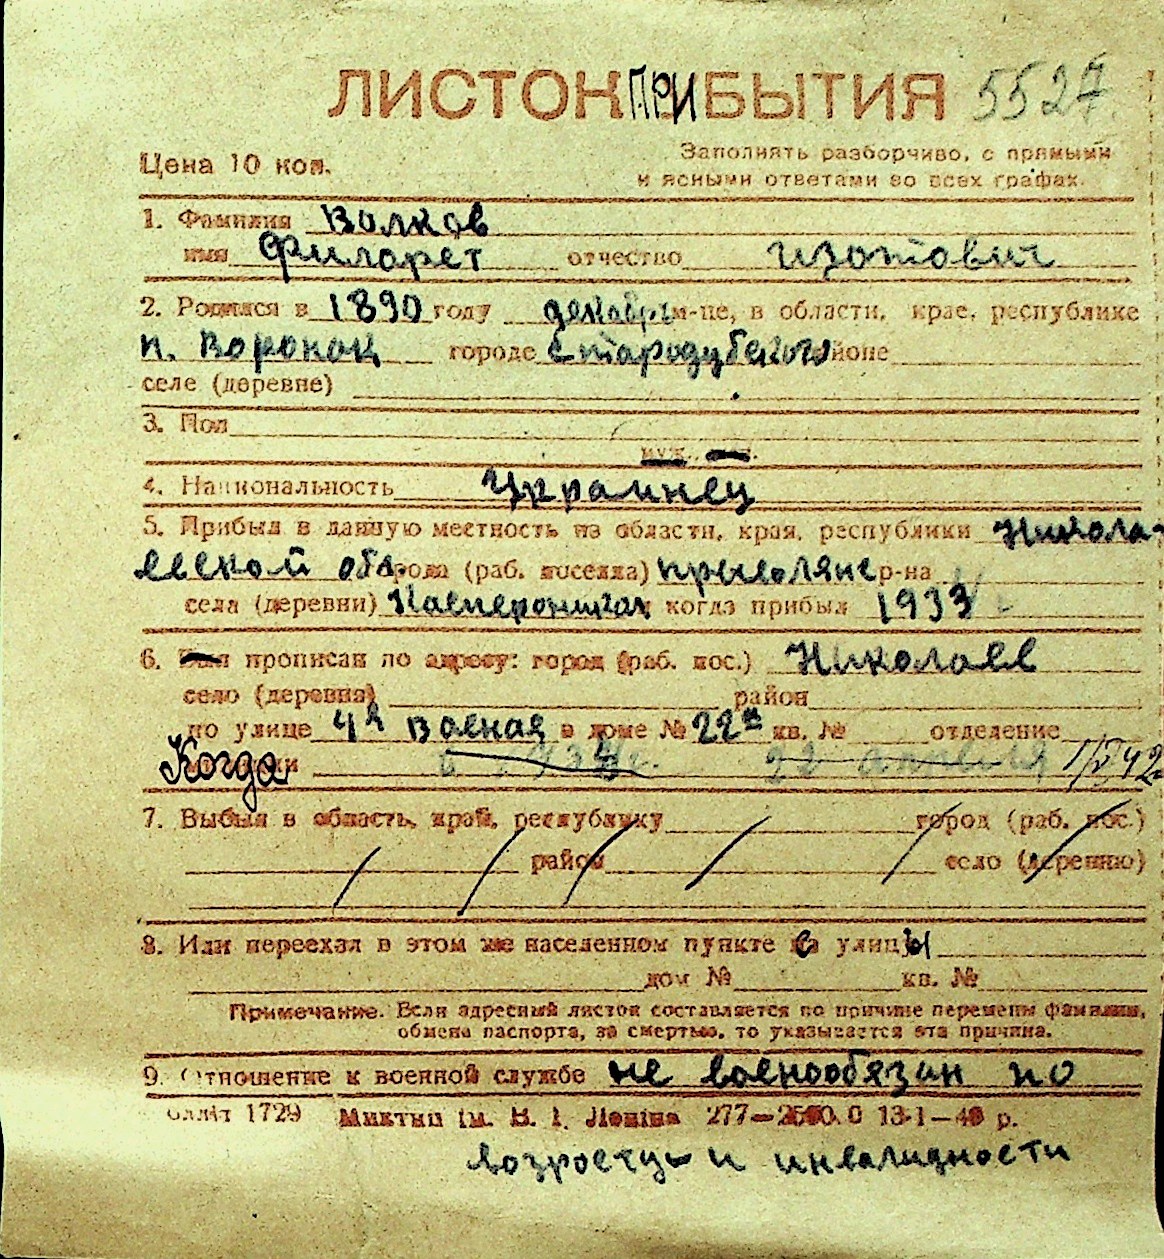 ЛИСТОК ПРИБЫТИЯ 5527
Цена 10 коп.
Заполнять разборчиво, с прямыми
и ясными ответами во всех графах.
1. Фамилия Волков
имя Филарет отчество Изотович
2. Родился в 1890 году декабрь м-це, в области, крае, республике
п. Воронок городе Стародубского районе
селе (деревне)
3. Пол
муж.
4. Национальность Украинец
5. Прибыл в данную местность из области, края, республики Никола-
евской обл. города (раб. поселка) р-на
села (деревни) когда прибыл 1933
6. прописан по адресу: город (раб. пос.) Николаев
село (деревня) район
по улице 4я Воєная в доме № 22а кв. № отделение
Когда 22 апреля 1/V 42
7. Выбыл в область, край, республику город (раб. пос.)
район село (деревню)
8. Или переехал в этом же населенном пункте с улицы
дом № кв. №
Примечание. Если адресный листок составляется по причине перемены фамилии,
обмена паспорта, за смертью, то указывается эта причина.
9. Отношение к военной службе не военообязан по
1729 Миктип ім. В. І. Леніна 277— р.
возросту и инвалидности